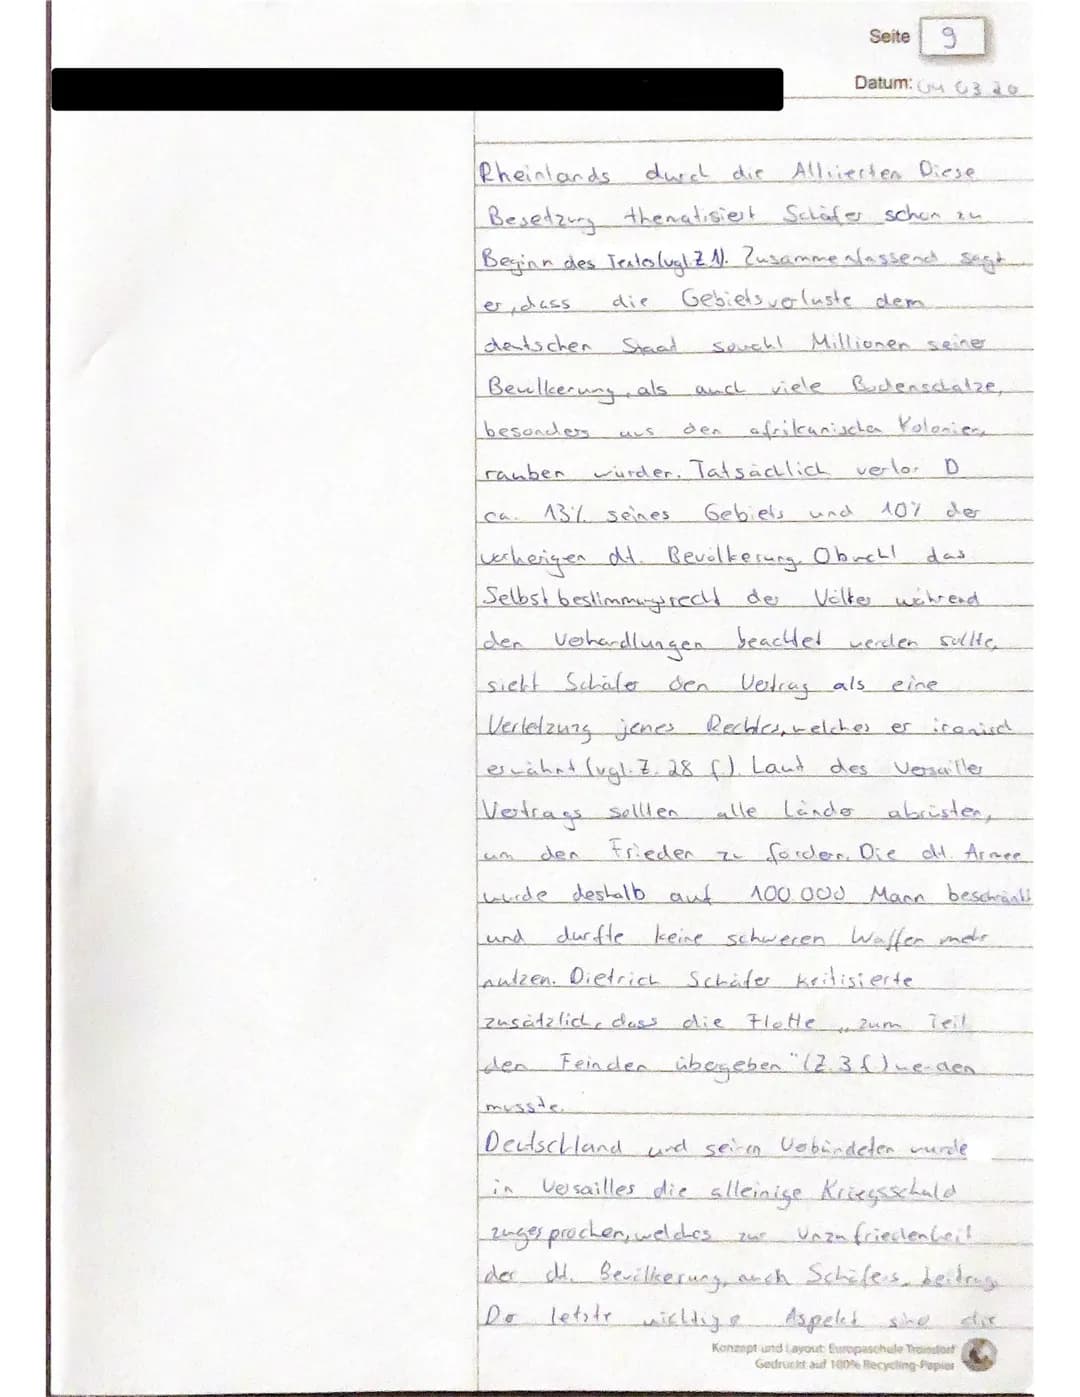 Seite 9
Datum: 04 03 20
Rheinlands durch die Alliierten Diese
Besetzung thematisiert Schäfer schon zu
Beginn des Textes (vgl. Z 1). Zusammenfassend sagt
er, dass die Gebietsverluste dem
deutschen Staat sowohl Millionen seiner
Bevölkerung, als auch viele Bodenschätze,
besonders aus den afrikanischen Kolonien,
rauben würden. Tatsächlich verlor D
ca. 13% seines Gebiets und 10% der
vorherigen dt. Bevölkerung. Obwohl das
Selbstbestimmungsrecht der Völker während
den Verhandlungen beachtet werden sollte,
sieht Schäfer den Vertrag als eine
Verletzung jenes Rechtes, welches er ironisch
erwähnt (vgl. Z. 28 f.). Laut des Versailler
Vertrags sollten alle Länder abrüsten,
um den Frieden zu fördern. Die dt. Armee
wurde deshalb auf 100.000 Mann beschränkt
und durfte keine schweren Waffen mehr
nutzen. Dietrich Schäfer kritisierte
zusätzlich, dass die Flotte „zum Teil
den Feinden übergeben" (Z. 3 f.) werden
musste.
Deutschland und seinen Verbündeten wurde
in Versailles die alleinige Kriegsschuld
zugesprochen, welches zur Unzufriedenheit
der dt. Bevölkerung, auch Schäfers, beitrug.
Der letzte wichtige Aspekt sind die
Konzept und Layout: Europaschule Troisdorf
Gedruckt auf 100% Recycling-Papier